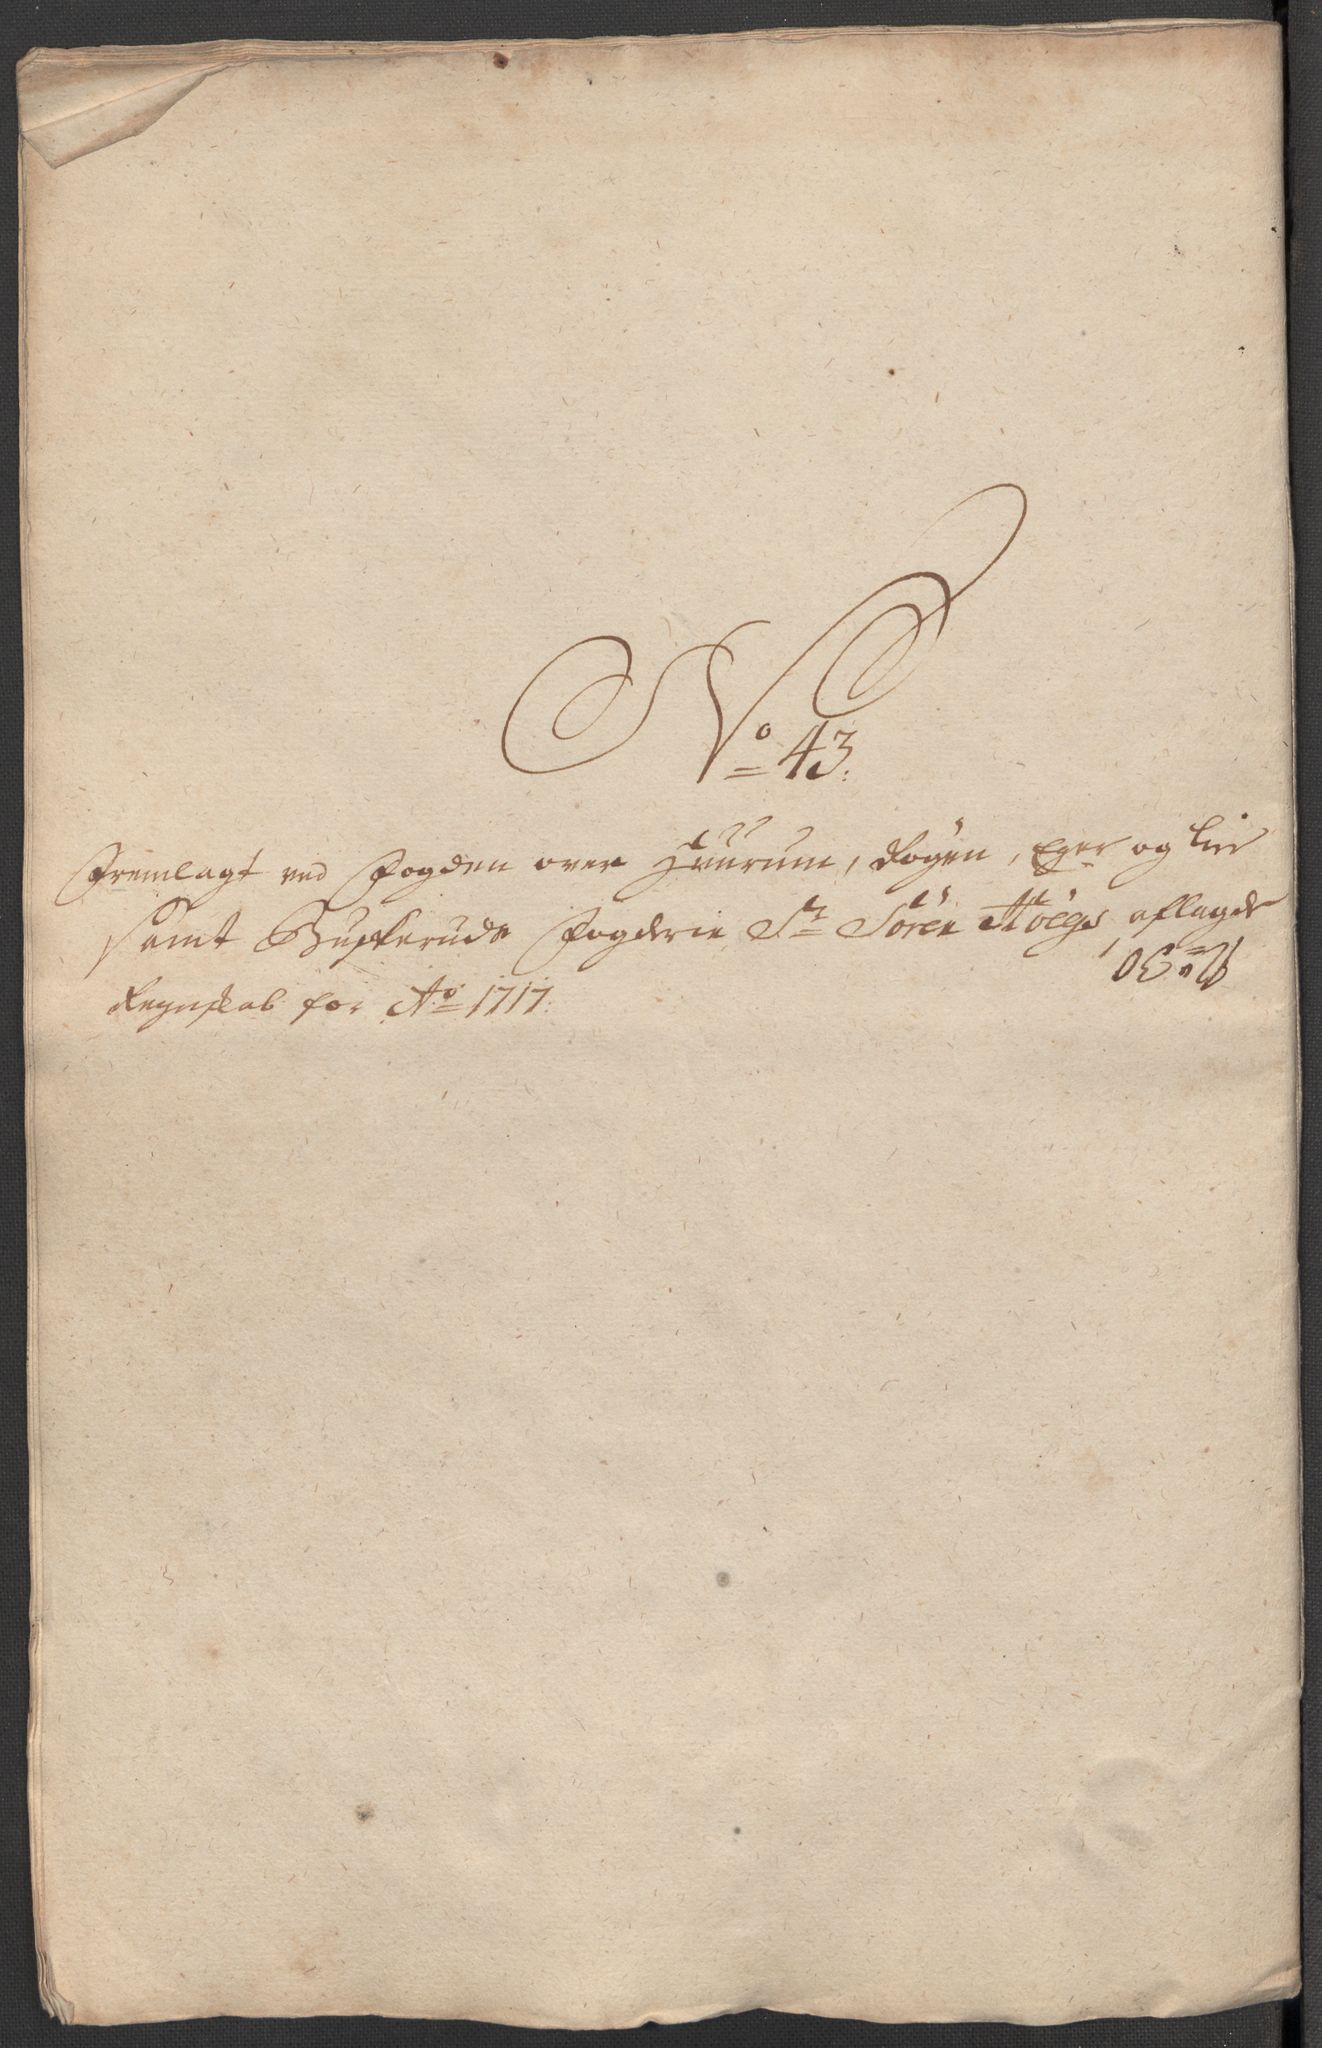 No 43.
Fremlagt ved Fogden over Huurum, Røgen, Eger og Lier
samt Buskeruds Fogderie Sr Sören aflagde
Regnskab for Ao 1717.
No 30